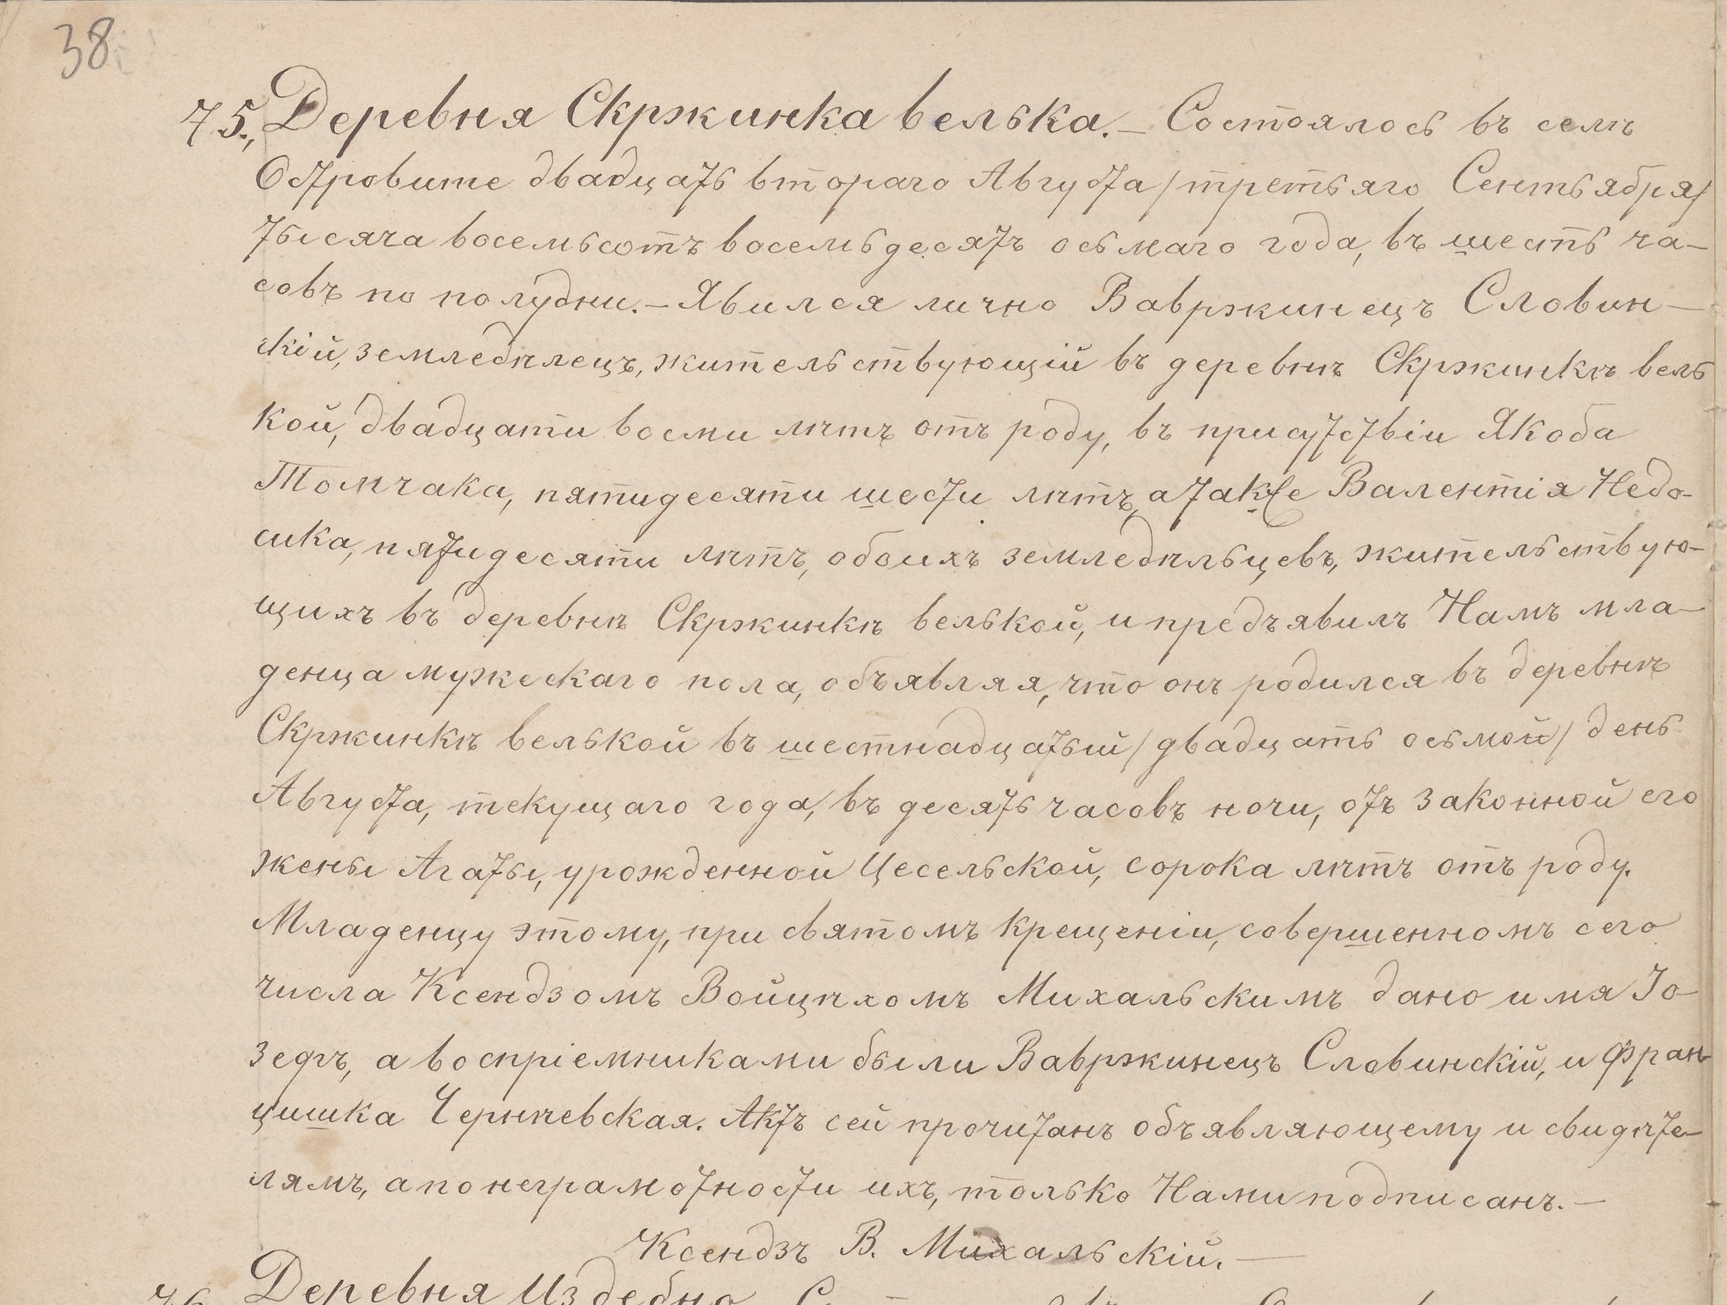 38
75., Деревня Скржинка велька.– Состоялось въ селѣ
Островите двадцать втораго Августа /третьяго Сентября/
тысяча восемьсотъ восемьдесятъ осьмаго года, въ шесть ча-
совъ по полудни.– Явился лично Вавржинецъ Словин-
скій, земледѣлецъ, жительствующій въ деревнѣ Скржинкѣ вель
кой, двадцати восми лѣтъ отъ роду, въ присутствіи Якоба
Томчака, пятидесяти шести лѣтъ, а также Валентія Недо-
сика, пятидесяти лѣтъ, обоихъ земледѣльцевъ, жительствую-
щихъ въ деревнѣ Скржинкѣ велькой, и предъявилъ Намъ мла-
денца мужескаго пола, объявляя, что онъ родился въ деревнѣ
Скржинкѣ велькой въ шестнадцатый /двадцать осьмой/ день
Августа, текущаго года, въ десять часовъ ночи, отъ законной его
жены Агаты, урожденной Цесельской, сорока лѣтъ отъ роду.
Младенцу этому, при святомъ крещеніи, совершенномъ сего
числа Ксендзомъ Войцѣхомъ Михальскимъ дано имя Іо-
зефъ, а воспріемниками были Вавржинецъ Словинскій, и Фран
цишка Чернѣевская. Актъ сей прочитанъ объявляющему и свидѣте-
лямъ, а по неграмотности ихъ, только Нами подписанъ.–
Ксендзъ В. Михальскій.–
76. Деревня Издебно.